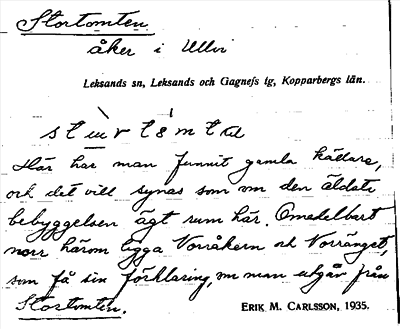 Stortomten
åker i Ullvi
Leksands sn, Leksands och Gagnefs tg, Kopparbergs län.
Här har man funnit gamla källare,
och det vill synas som om den äldste
bebyggelsen ägt rum här. Omedelbart
norr härom ligga Norråkern och Norränget,
som få sin förklaring, om man utgår från
Stortomten.
ERIK M. CARLSSON, 1935.